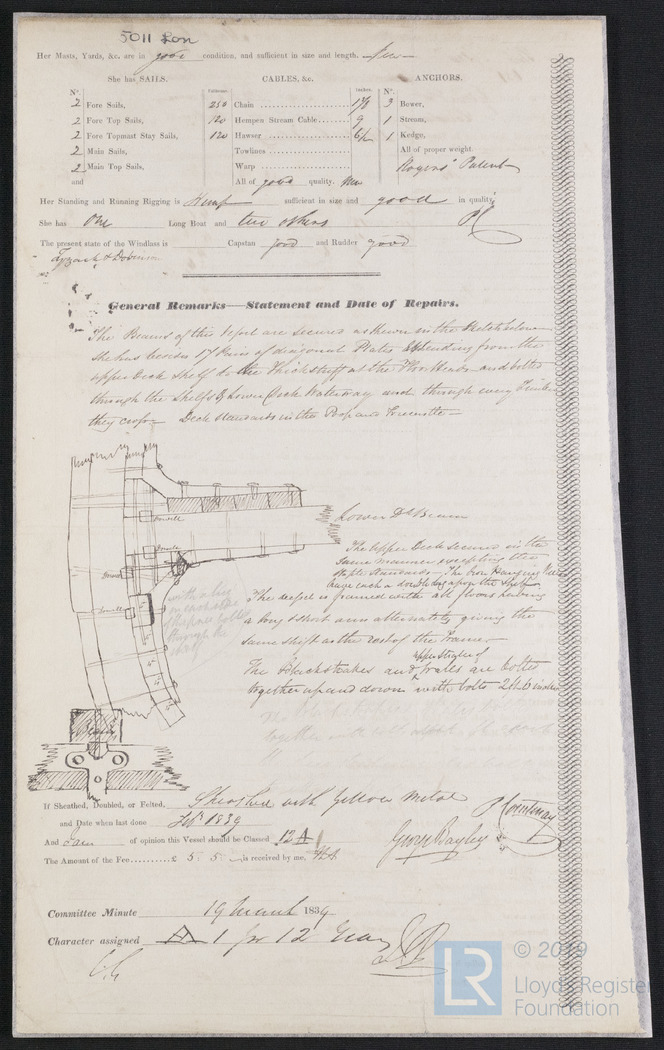 5011 Lon
Her Masts, Yards, &c. are in good condition, and sufficient in size and length.
She has SAILS. CABLES, &c. ANCHORS.
N°. Fathoms. Inches. N°.
2 Fore Sails, 250 Chain 3 Bower,
2 Fore Top Sails, 120 Hempen Stream Cable 9 1 Stream,
2 Fore Topmast Stay Sails, 120 Hawser 6½ 1 Kedge,
2 Main Sails, Towlines All of proper weight.
2 Main Top Sails, Warp Rogers' Patent
and All of good quality.
Her Standing and Running Rigging is Hemp sufficient in size and good in quality
She has One Long Boat and two others
The present state of the Windlass is Capstan good and Rudder good
General Remarks—Statement and Date of Repairs.
The Beams of this vessel are secured as shewn in the Sketch below
She has besides 17 Pairs of diagonal Plates extending from the
upper Deck Shelf to the Thickstuff at the Floor Heads and bolted
through the Shelf & Lower Deck Waterway and through every Timber
they cross— Deck Standards in the Poop and
Lower Dk Beam
The Upper Deck secured in the
same manner excepting the
Staple Standards. The Iron Hanging Knees
have each a upon the Shelf
The vessel is framed with all floors having
a long & short arm alternately giving the
same shift as the rest of the Frame.
upper strake of
The Blackstrakes and Walls are bolted
together up and down with bolts
Dowell
Dowell
Dowell
Dowell
If Sheathed, Doubled, or Felted, Sheathed with Yellow Metal
and Date when last done Feb 1839 P Courtenay
And I am of opinion this Vessel should be Classed 12 A George Bayley
The Amount of the Fee £ 5 : 5 : is received by me,
Committee Minute 19 March 1839
Character assigned A 1 for 12 Years
© 2019
LR Lloyd's Register
Foundation